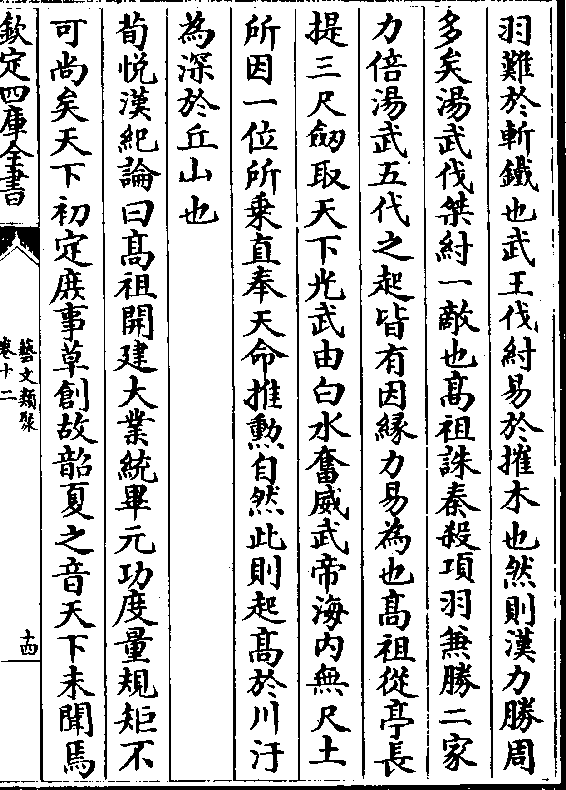 羽難於斬鐵也武王伐紂易於摧木也然則漢力勝周
多矣湯武伐桀紂一敵也髙祖誅秦殺項羽兼勝二家
力倍湯武五代之起皆有因縁力易為也髙祖從亭長
提三尺劒取天下光武由白水奮威武帝海内無尺土
所因一位所乗直奉天命推勲自然此則起髙於川汙
為深於丘山也
荀悦漢紀論曰髙祖開建大業統畢元功度量規矩不
可尚矣天下初定庻事草創故韶夏之音天下未聞焉
欽定四庫全書
藝文類聚
卷十二
十四